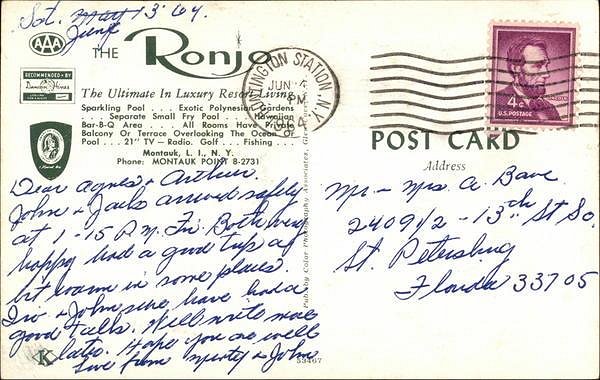 Sat. May 13 '64.
June
AAA
THE Ronjo
RECOMMENDED BY
Duncan Hines
The Ultimate In Luxury Resort Living
Sparkling Pool . . . Exotic Polynesian Gardens
. . . Separate Small Fry Pool . . . Hawaiian
Bar-B-Q Area . . . All Rooms Have Private
Balcony Or Terrace Overlooking The Ocean Or
Pool . . . 21" TV - Radio. Golf . . . Fishing
Montauk, L. I., N. Y.
Phone: MONTAUK POINT 8-2731
HUNTINGTON STATION, N.Y.
JUN
PM
4¢
LINCOLN
U.S. POSTAGE
POST CARD
Address
Dear Agnes & Arthur.
John & Jack arrived safely
at 1-15 P.M. Fri. Both very
happy had a good trip a
bit warm in some places.
Irv & John sure have had a
good talks. Will write more
later. Hope you are well
Love from & John
Mr - Mrs. A. Bave
2409 1/2 - 13th St So.
St. Petersburg
Florida 33705
Pub. by Color Photography Associates,
K
53467